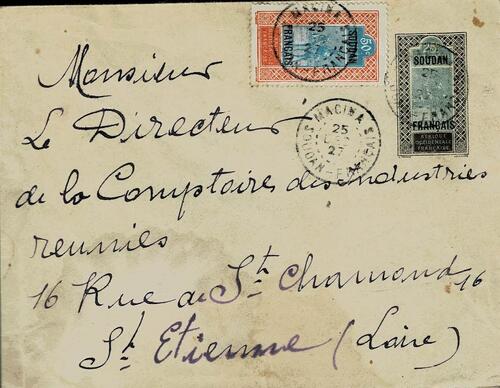 MACINA
25
SOUDAN FRANÇAIS
50c
SOUDAN
FRANÇAIS
25c
SOUDAN
FRANÇAIS
AFRIQUE
OCCIDENTALE
FRANÇAISE
MACINA
25
27
SOUDAN-FRANÇAIS
Monsieur
Le Directeur
de la Comptoire des Industries
reunies
16 Rue de St. Chamond 16
St Etienne (Loire)